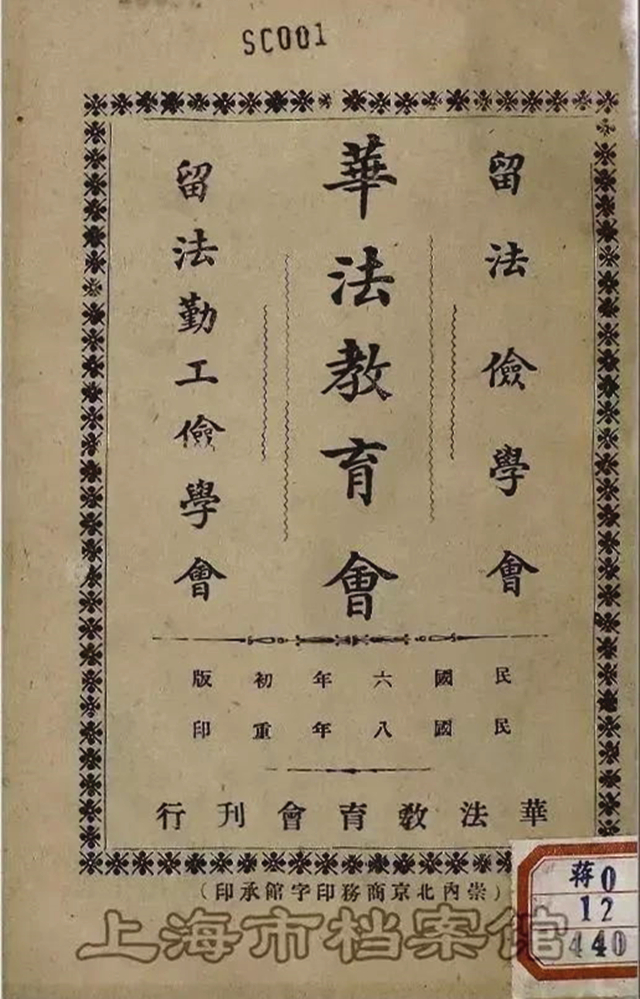 SC001
留法儉學會
華法教育會
留法勤工儉學會
民國六年初版
民國八年重印
華法教育會刊行
(崇內北京商務印字館承印)
蒋0
12
440
上海市档案馆